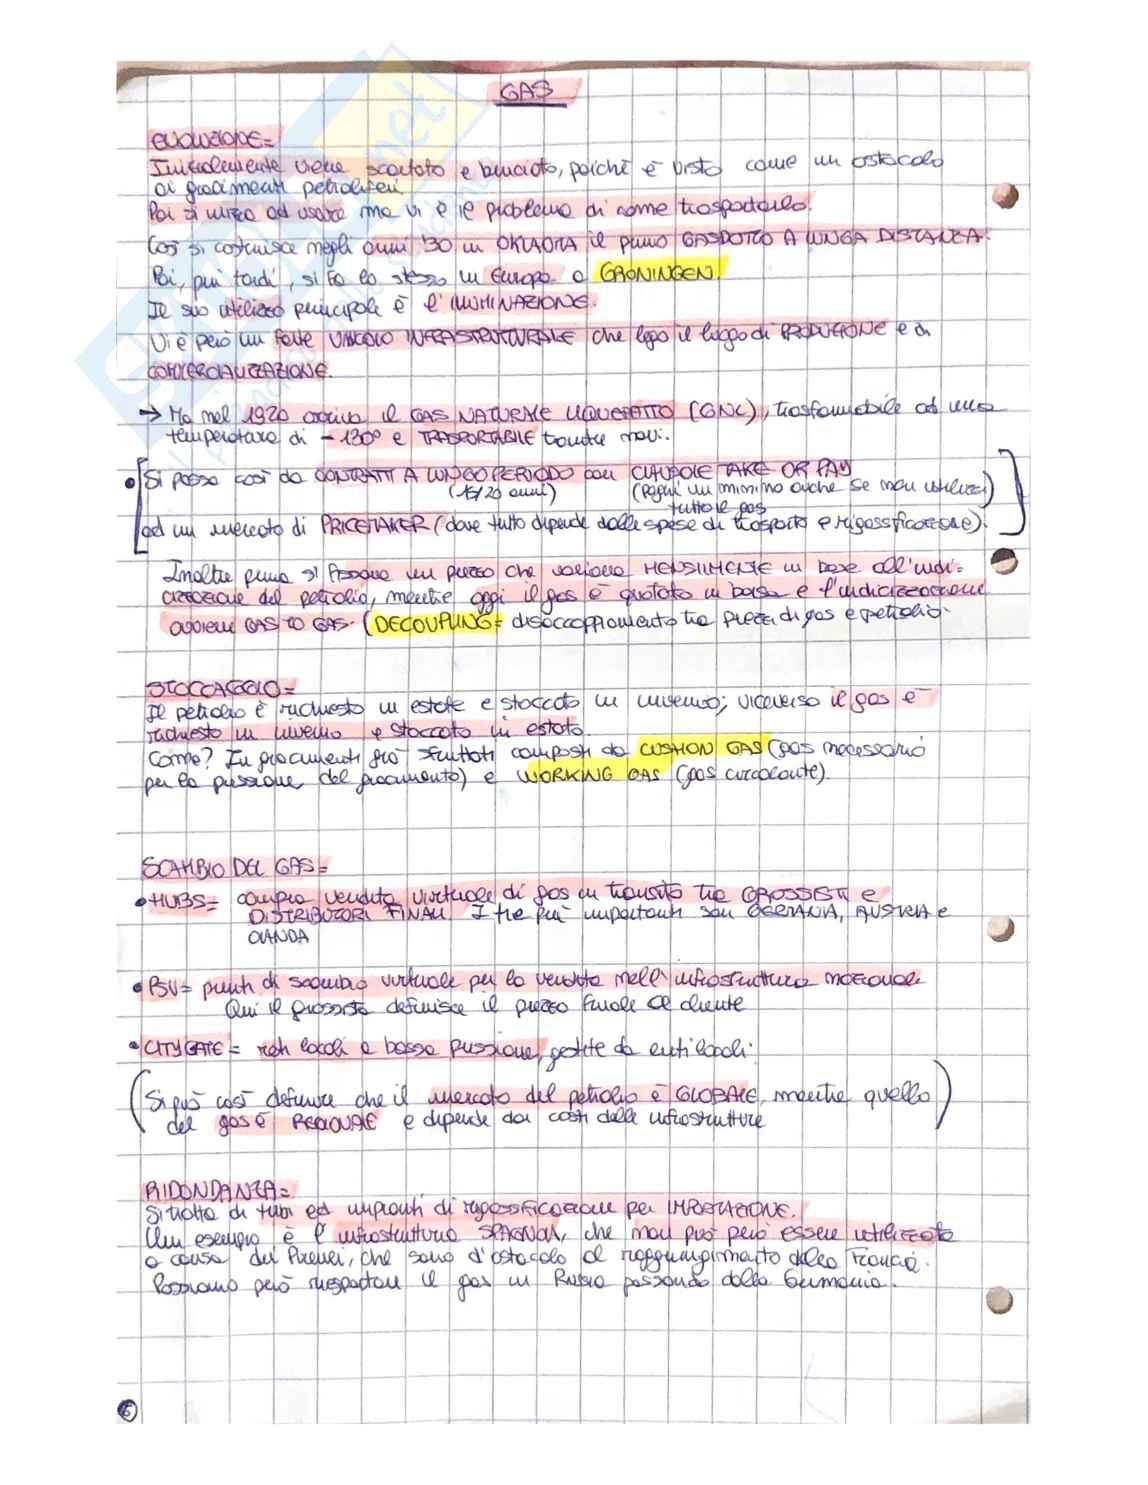 GAS
EVOLUZIONE=
Inizialmente viene scartato e bruciato, poiché è visto come un ostacolo
ai giacimenti petroliferi.
Poi si inizia ad usare ma vi è il problema di come trasportarlo.
Così si costruisce negli anni '30 in OKLAOMA il primo GASDOTTO A LUNGA DISTANZA.
Poi, più tardi, si fa lo stesso in Europa a GRONINGEN.
Il suo utilizzo principale è l'ILLUMINAZIONE.
Vi è però un forte VINCOLO INFRASTRUTTURALE che lega il luogo di PRODUZIONE e di
COMMERCIALIZZAZIONE.
→ Ma nel 1920 arriva il GAS NATURALE LIQUEFATTO (GNL), trasformabile ad una
temperatura di -130° e TRASPORTABILE tramite navi.
• Si passa così da CONTRATTI A LUNGO PERIODO con CLAUSOLE TAKE OR PAY
(15/20 anni) (paghi un minimo anche se non utilizzi
tutto il gas)
ad un mercato di PRICETAKER (dove tutto dipende dalle spese di trasporto e rigassificazione).
Inoltre prima si fissava un prezzo che variava MENSILMENTE in base all'indi-
cizzazione del petrolio, mentre oggi il gas è quotato in borsa e l'indicizzazione
avviene GAS TO GAS. (DECOUPLING= disaccoppiamento tra prezzi di gas e petrolio.
STOCCAGGIO=
Il petrolio è richiesto in estate e stoccato in inverno; viceversa il gas è
richiesto in inverno e stoccato in estate.
Come? In giacimenti già sfruttati composti da CUSHION GAS (gas necessario
per la pressione del giacimento) e WORKING GAS (gas circolante).
SCAMBIO DEL GAS=
• HUBS= compra vendita virtuale di gas in transito tra GROSSISTI e
DISTRIBUTORI FINALI. I tre più importanti son GERMANIA, AUSTRIA e
OLANDA
• PSV= punti di scambio virtuale per la vendita nell'infrastruttura nazionale
Qui il grossista definisce il prezzo finale al cliente
• CITYGATE= reti locali a bassa pressione, gestite da enti locali.
(Si può così definire che il mercato del petrolio è GLOBALE, mentre quello
del gas è REGIONALE e dipende dai costi delle infrastrutture)
RIDONDANZA=
Si tratta di tubi ed impianti di rigassificazione per IMPORTAZIONE.
Un esempio è l'infrastruttura SPAGNOLA, che non può però essere utilizzata
a causa dei Pirenei, che sono d'ostacolo al raggiungimento della Francia.
Possiamo però rispostare il gas in Russia passando dalla Germania.
6